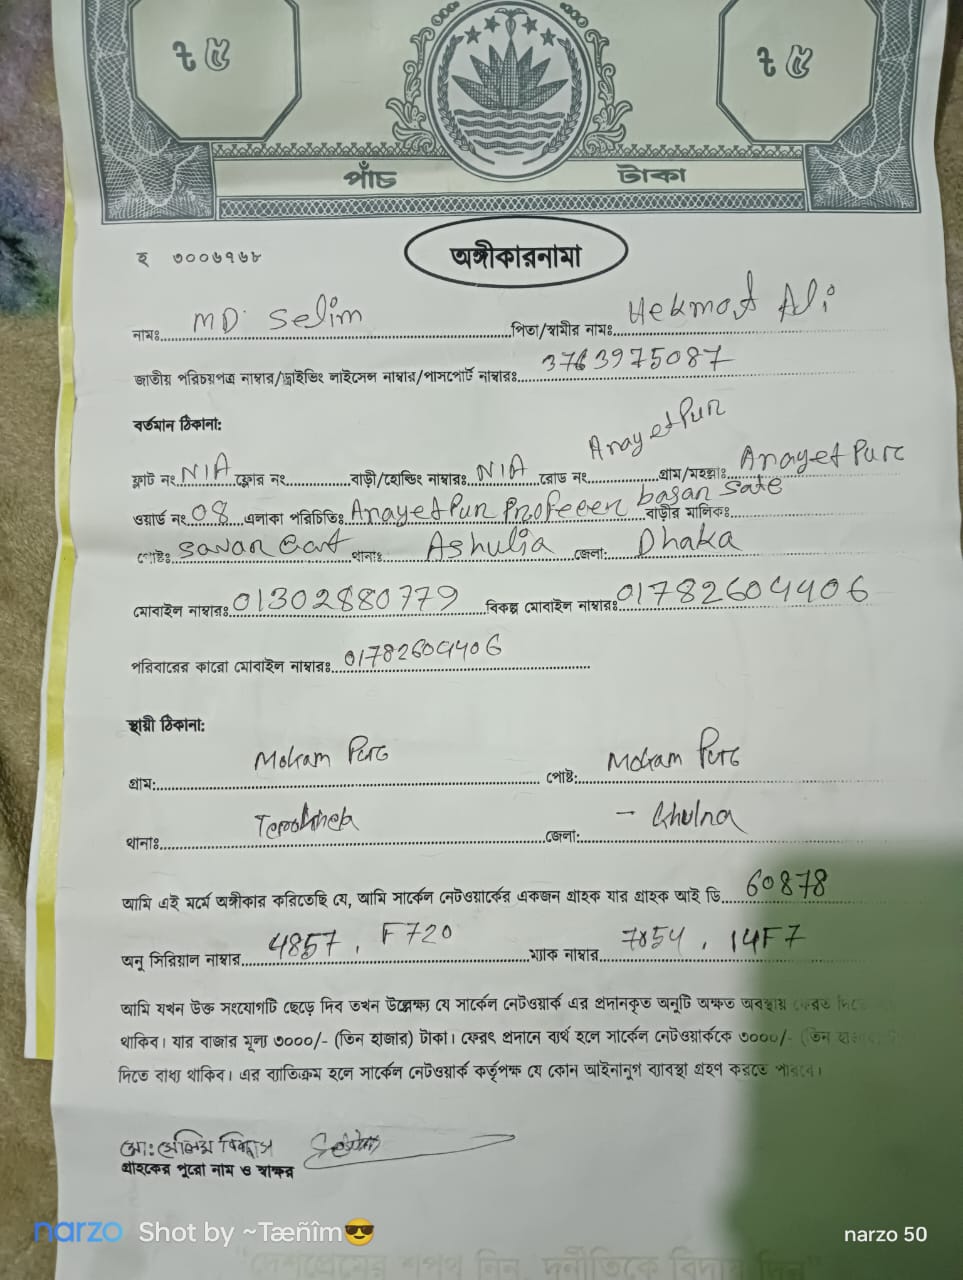 ৳ ৫ ৳ ৫
পাঁচ টাকা
হ ৩০০৬৭৬৮
অঙ্গীকারনামা
নামঃ MD. Selim পিতা/স্বামীর নামঃ Hekmot Ali
জাতীয় পরিচয়পত্র নাম্বার/ড্রাইভিং লাইসেন্স নাম্বার/পাসপোর্ট নাম্বারঃ 3763975087
বর্তমান ঠিকানা:
ফ্লাট নং N/A ফ্লোর নং বাড়ী/হোল্ডিং নাম্বারঃ N/A রোড নং AnayetPur গ্রাম/মহল্লাঃ Anayet Pure
ওয়ার্ড নং 08 এলাকা পরিচিতিঃ Anayet Pur basan বাড়ীর মালিকঃ
পোষ্টঃ Savar থানাঃ Ashulia জেলা: Dhaka
মোবাইল নাম্বারঃ 01302880779 বিকল্প মোবাইল নাম্বারঃ 01782604406
পরিবারের কারো মোবাইল নাম্বারঃ 01782604406
স্থায়ী ঠিকানা:
গ্রাম: পোষ্ট:
থানাঃ জেলা: - Khulna
আমি এই মর্মে অঙ্গীকার করিতেছি যে, আমি সার্কেল নেটওয়ার্কের একজন গ্রাহক যার গ্রাহক আই ডি 60878
অনু সিরিয়াল নাম্বার 4857, F720 ম্যাক নাম্বার 7854, 14F7
আমি যখন উক্ত সংযোগটি ছেড়ে দিব তখন উল্লেক্ষ্য যে সার্কেল নেটওয়ার্ক এর প্রদানকৃত অনুটি অক্ষত অবস্থায় ফেরত দিতে
থাকিব। যার বাজার মূল্য ৩০০০/- (তিন হাজার) টাকা। ফেরৎ প্রদানে ব্যর্থ হলে সার্কেল নেটওয়ার্ককে ৩০০০/- (তিন
দিতে বাধ্য থাকিব। এর ব্যাতিক্রম হলে সার্কেল নেটওয়ার্ক কর্তৃপক্ষ যে কোন আইনানুগ ব্যাবস্থা গ্রহণ করতে পারবে।
মো: সেলিম বিশ্বাস
গ্রাহকের পুরো নাম ও স্বাক্ষর
narzo Shot by ~Tæñîm😎 narzo 50
"দেশপ্রেমের শপথ নিন, দুর্নীতিকে বিদায় দিন"